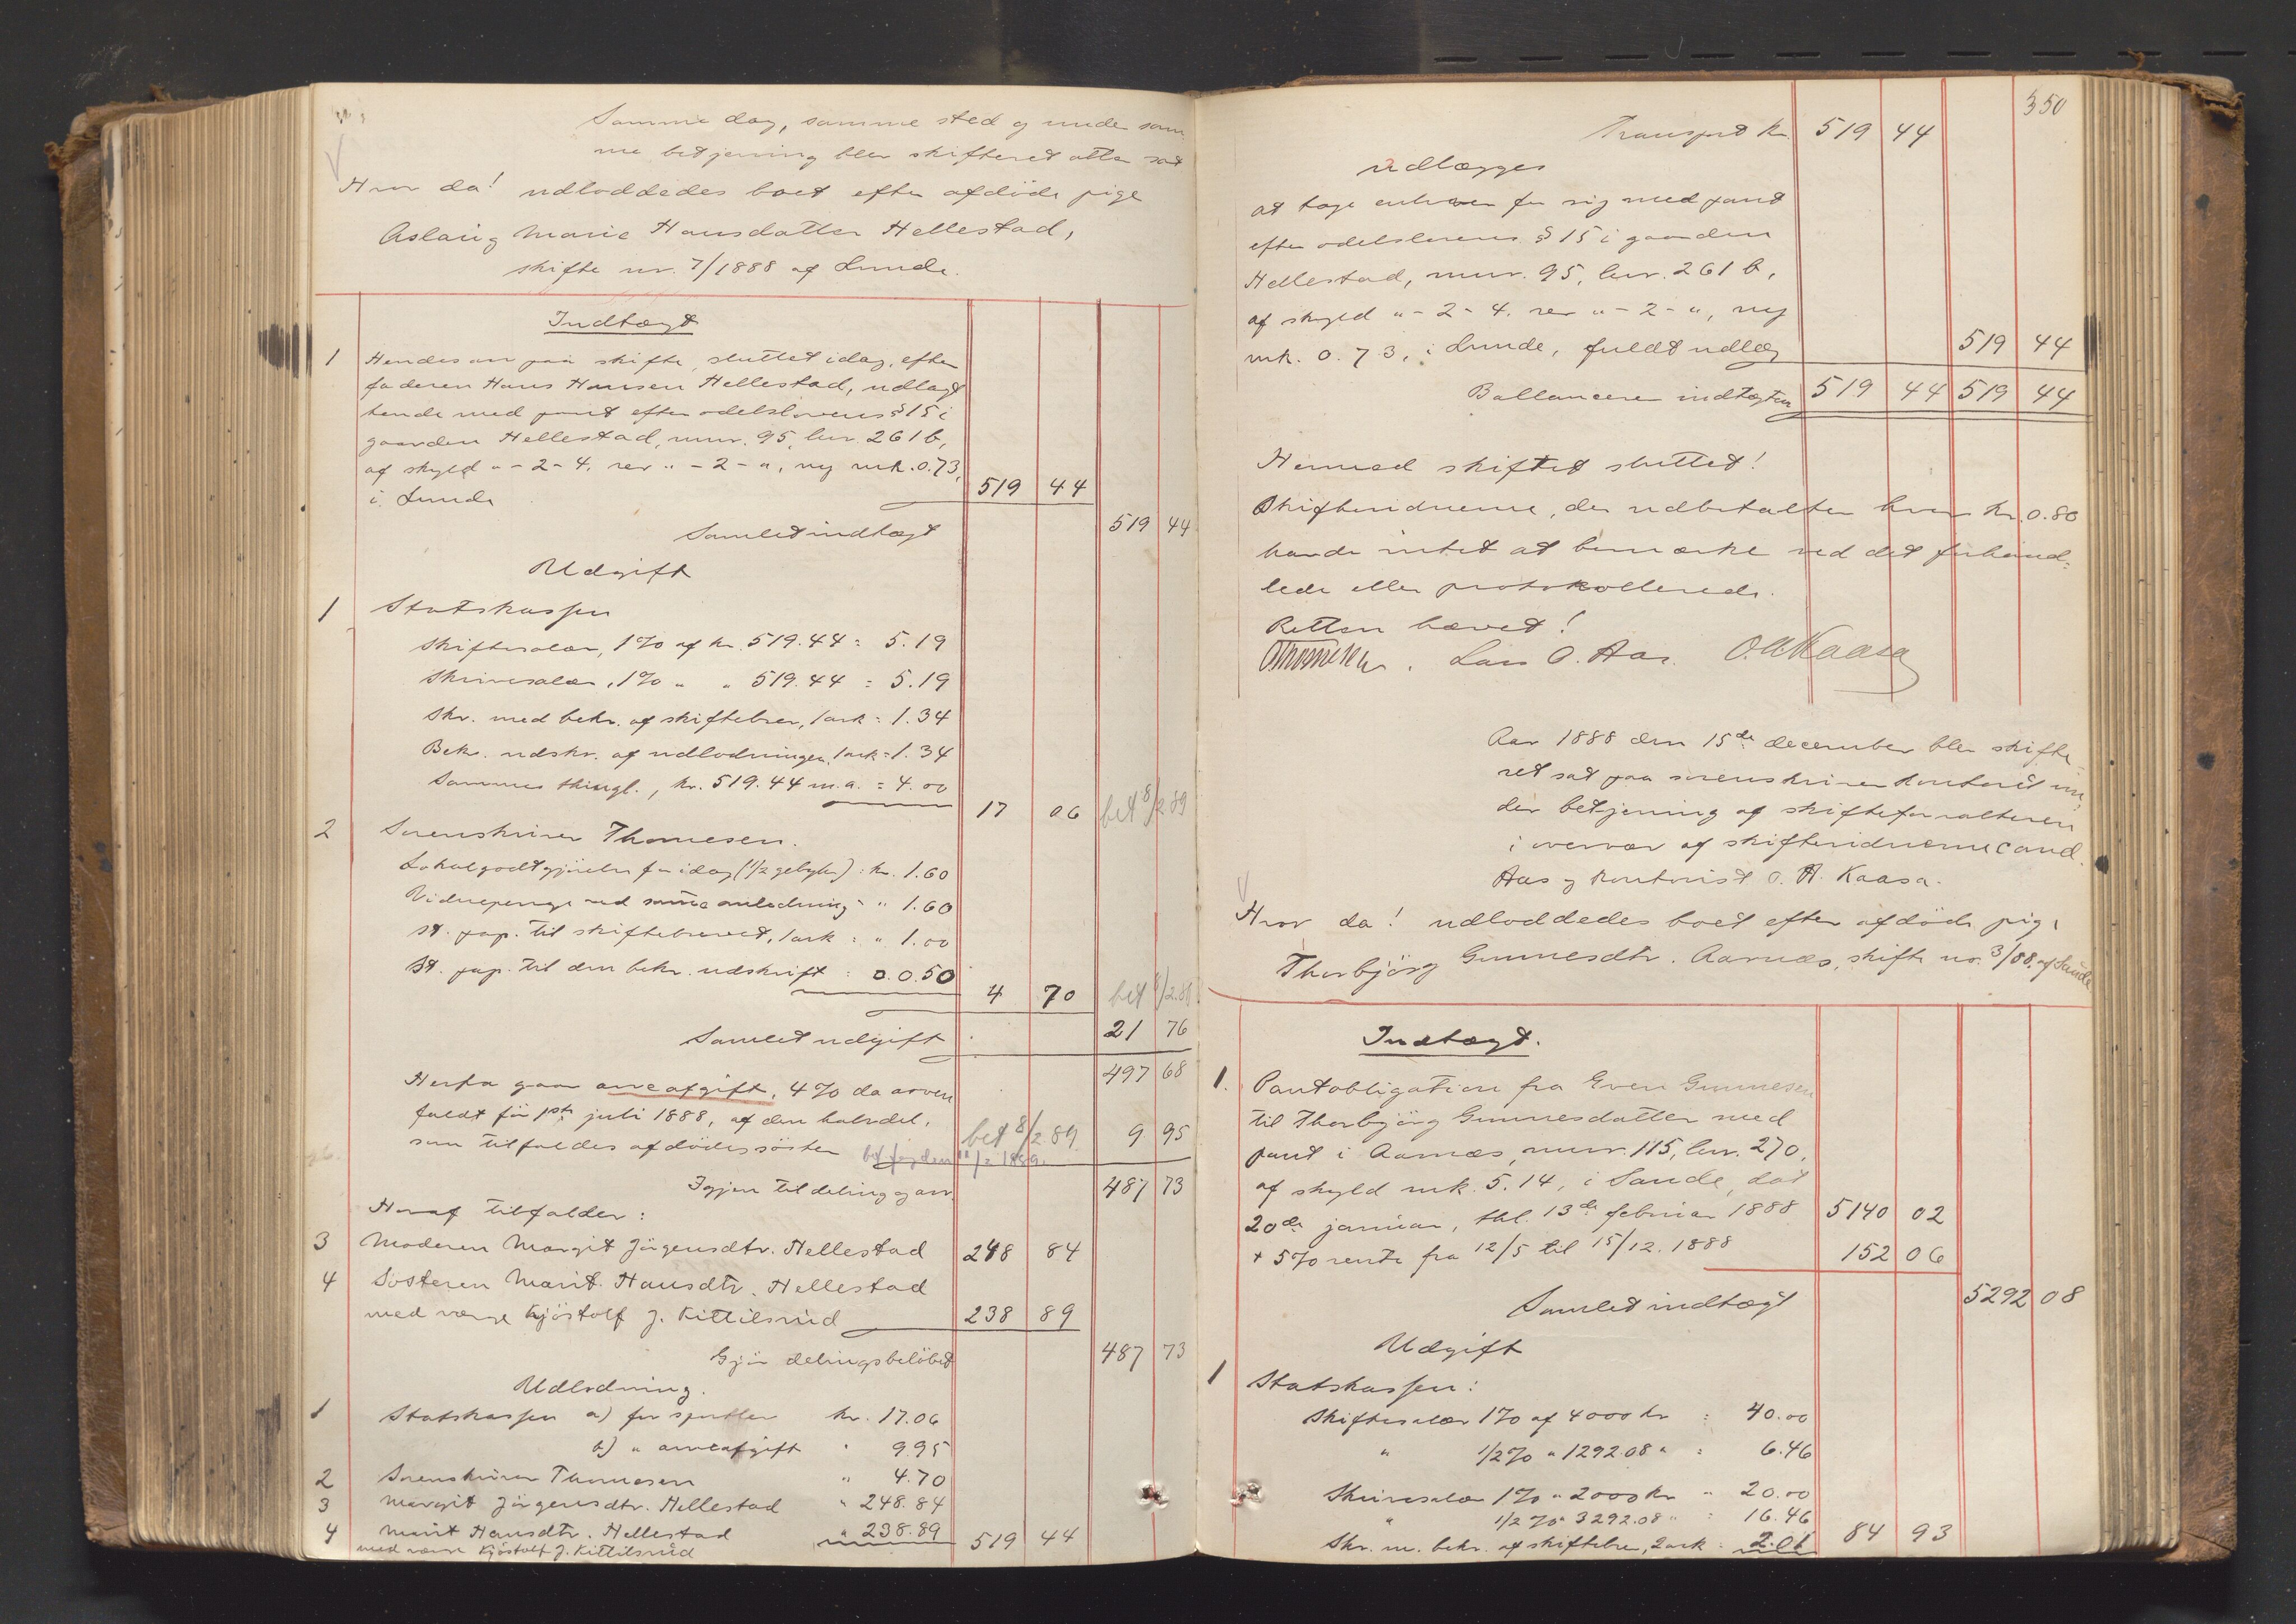 Samme dag, samme sted og under sam
me betjening blev skifteret atter sat
Hvor da! udloddedes boet efter afdöde pige
Aslaug Marie Hansdatter Hellestad,
skifte nr. 7/1888 af Lunde.
Indtægt
1 Hendes arv paa skifte, sluttet idag, efter
faderen Hans Hansen Hellestad, udlagt
hende med pant efter odelslovens § 15 i
gaarden Hellestad, mnr. 95, lnr. 261 b,
af skyld " - 2 - 4, rev " - 2 - ", ny mk. 0.73,
i Lunde 519 44
Samlet indtægt 519 44
Udgift
1 Statskassen
Skiftesalær, 1% af kr. 519.44 = 5.19
Skrivesalær, 1% " " 519.44 = 5.19
Skr. med bekr. af skiftebrev, 1 ark = 1.34
Bekr. udskr. af udlodningen, 1 ark = 1.34
Sammes thingl., kr. 519.44 m.a. = 4.00
17 06 bet 8/2.89
2 Sorenskriver Thomesen.
Lokalgodtgjörelse for idag (1/2 gebyhr) : kr. 1.60
Vidnepenge ved samme anledning " 1.60
St. pap. til skiftebrevet, 1 ark : " 1.00
St. pap. til den bekr. udskrift : 0.50
4 70 bet 8/2.89
Samlet udgift 21 76
497 68
Herfra gaar arveafgift, 4% da arven
faldt för 1ste juli 1888, af den halvdel,
som tilfaldes afdödes söster bet 8/2 89 9 95
Igjen til deling og arv 487 73
Heraf tilfalder:
3 Moderen Margit Jörgensdtr. Hellestad 248 84
4 Sösteren Marit Hansdtr. Hellestad
med værge Kjöstolf J. Kittilsrud 238 89
Gjör delingsbelöbet 487 73
Udlodning.
1 Statskassen a) for sportler kr. 17.06
b) " arveafgift " 9.95
2 Sorenskriver Thomesen " 4.70
3 Margit Jörgensdtr. Hellestad " 248.84
4 Marit Hansdtr. Hellestad " 238.89 519 44
med værge Kjöstolf J. Kittilsrud
350
Transport kr. 519 44
udlægges
at tage enhver for sig med pant
efter odelslovens § 15 i gaarden
Hellestad, mnr. 95, lnr. 261 b,
af skyld " - 2 - 4. rev " - 2 - ", ny
mk. 0.73, i Lunde, fuldt udlæg 519 44
Ballancerer indtægten 519 44 519 44
Hermed skiftet sluttet!
Skiftevidnerne, der udbetaltes hver kr. 0.80
havde intet at bemærke ved det forhand-
lede eller protokollerede.
Retten hævet!
Thomesen. Lars O. Aas. O.A. Kaasa
Aar 1888 den 15de december blev skifte
ret sat paa sorenskriverkontoret un
der betjening af skifteforvalteren
i overvær af skiftevidnerne cand.
Aas og kontorist O. A. Kaasa.
Hvor da! udloddedes boet efter afdöde pige
Thorbjörg Gunnesdtr. Aarnæs, skifte nr. 3/88. af Sande
Indtægt.
1. Pantobligation fra Even Gunnesen
til Thorbjörg Gunnesdatter med
pant i Aarnæs, mnr. 115, lnr. 270,
af skyld mk. 5.14, i Sande, dat
20de januar, thl. 13de februar 1888 5140 02
+ 5% rente fra 12/5 til 15/12. 1888 152 06
Samlet indtægt 5292 08
Udgift
1 Statskassen:
Skiftesalær 1% af 4000 kr : 40.00
" 1/2% " 1292.08 " : 6.46
Skrivesalær 1% " 2000 kr " 20.00
" 1/2% " 3292.08 " : 16.46
Skr. m. bekr. af skiftebrev, 2 ark : 2.01 84 93